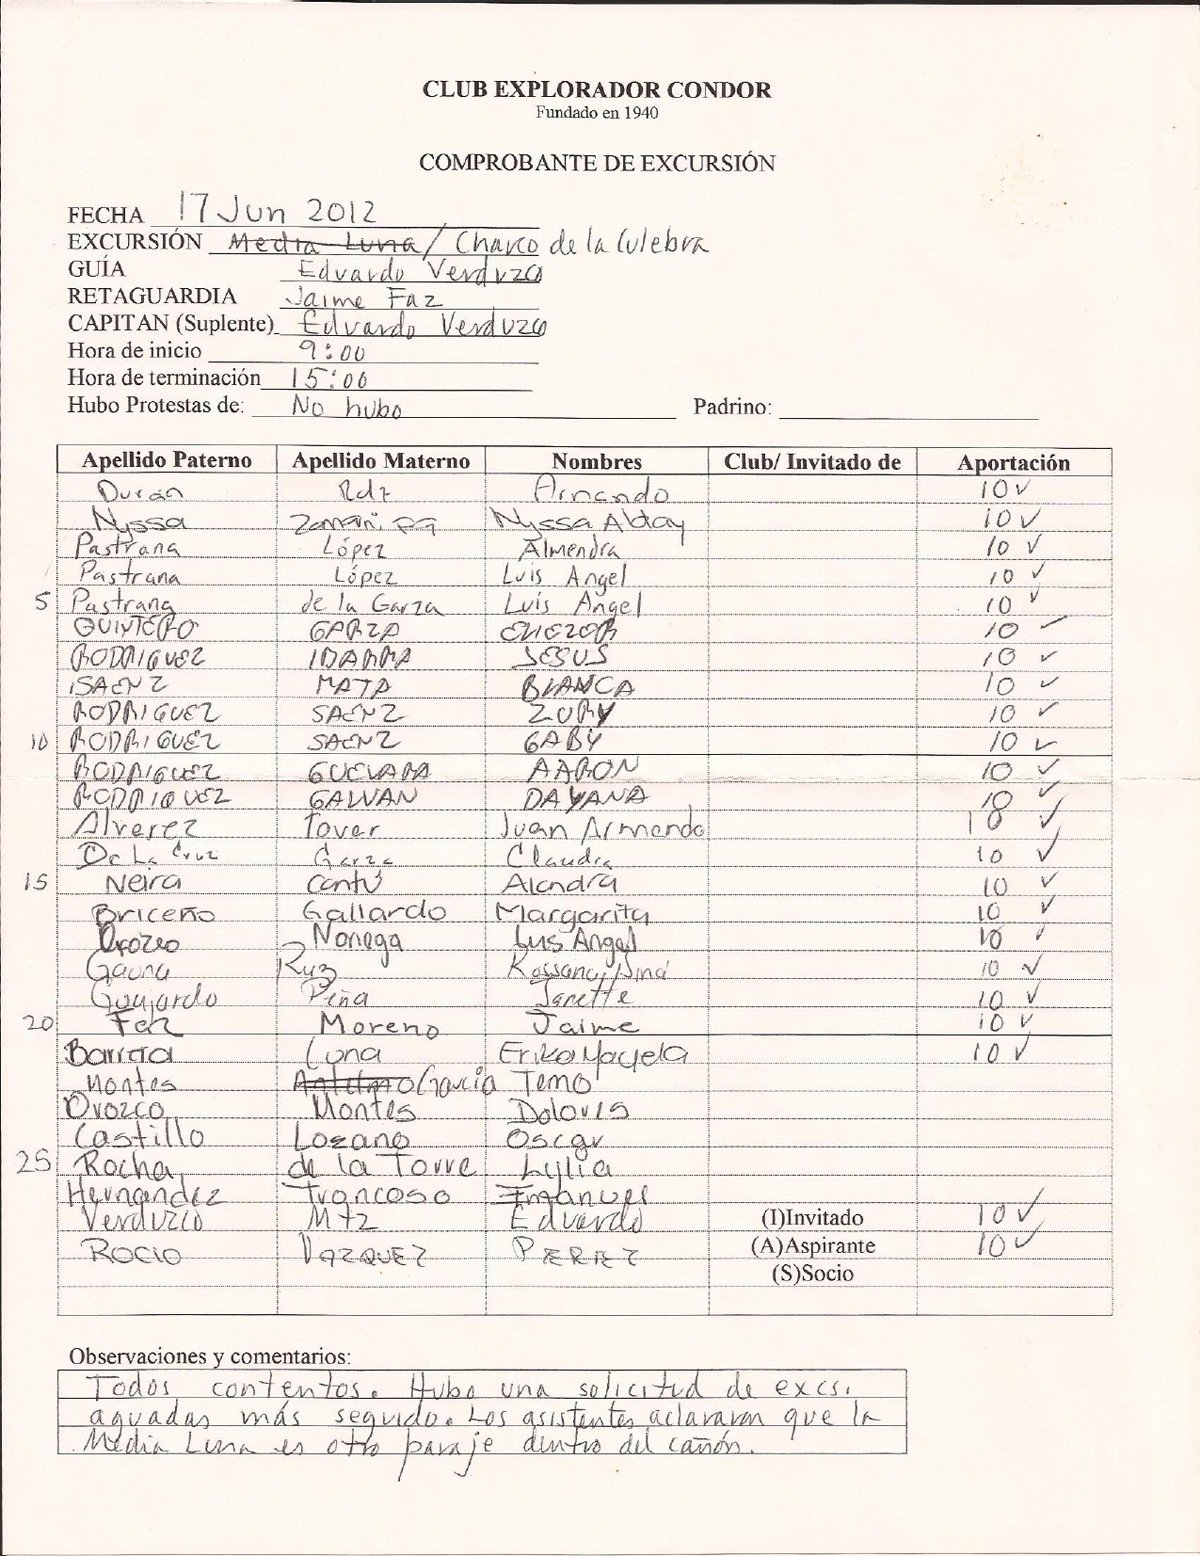 CLUB EXPLORADOR CONDOR
Fundado en 1940
COMPROBANTE DE EXCURSIÓN
FECHA 17 Jun 2012
EXCURSIÓN Media Luna / Charco de la Culebra
GUÍA Eduardo Verduzco
RETAGUARDIA Jaime Faz
CAPITAN (Suplente) Eduardo Verduzco
Hora de inicio 9:00
Hora de terminación 15:00
Hubo Protestas de: No hubo Padrino:
Apellido Paterno Apellido Materno Nombres Club/ Invitado de Aportación
Durán Rdz Armando 10 ✓
Nyssa Nyssa Alday 10 ✓
Pastrana López Almendra 10 ✓
Pastrana López Luis Angel 10 ✓
5 Pastrana de la Garza Luis Angel 10 ✓
QUINTERO GARZA 10 ✓
RODRIGUEZ JESUS 10 ✓
SAENZ MATA BIANCA 10 ✓
RODRIGUEZ SAENZ ZURY 10 ✓
10 RODRIGUEZ SAENZ GABY 10 ✓
RODRIGUEZ GUEVARA AARON 10 ✓
RODRIGUEZ GALVAN DAYANA 10 ✓
Alverez Tover Juan Armando 10 ✓
De La Cruz Garza Claudia 10 ✓
15 Neira Cantú Alondra 10 ✓
Briceño Gallardo Margarita 10 ✓
Orozco Noriega Luis Angel 10 ✓
Gaona Ruz 10 ✓
Guajardo Peña Janette 10 ✓
20 Faz Moreno Jaime 10 ✓
Barrera Luna Erika Mayela 10 ✓
Montes García Temo
Orozco Montes Dolores
Castillo Lozano Oscar
25 Rocha de la Torre Lylia
Hernandez Troncoso Emanuel
Verduzco Mtz Eduardo (I)Invitado 10 ✓
ROCIO VAZQUEZ PEREZ (A)Aspirante 10 ✓
(S)Socio
Observaciones y comentarios:
Todos contentos. Hubo una solicitud de excs.
aguadas más seguido. Los asistentes aclararon que la
Media Luna es otro paraje dentro del cañón.